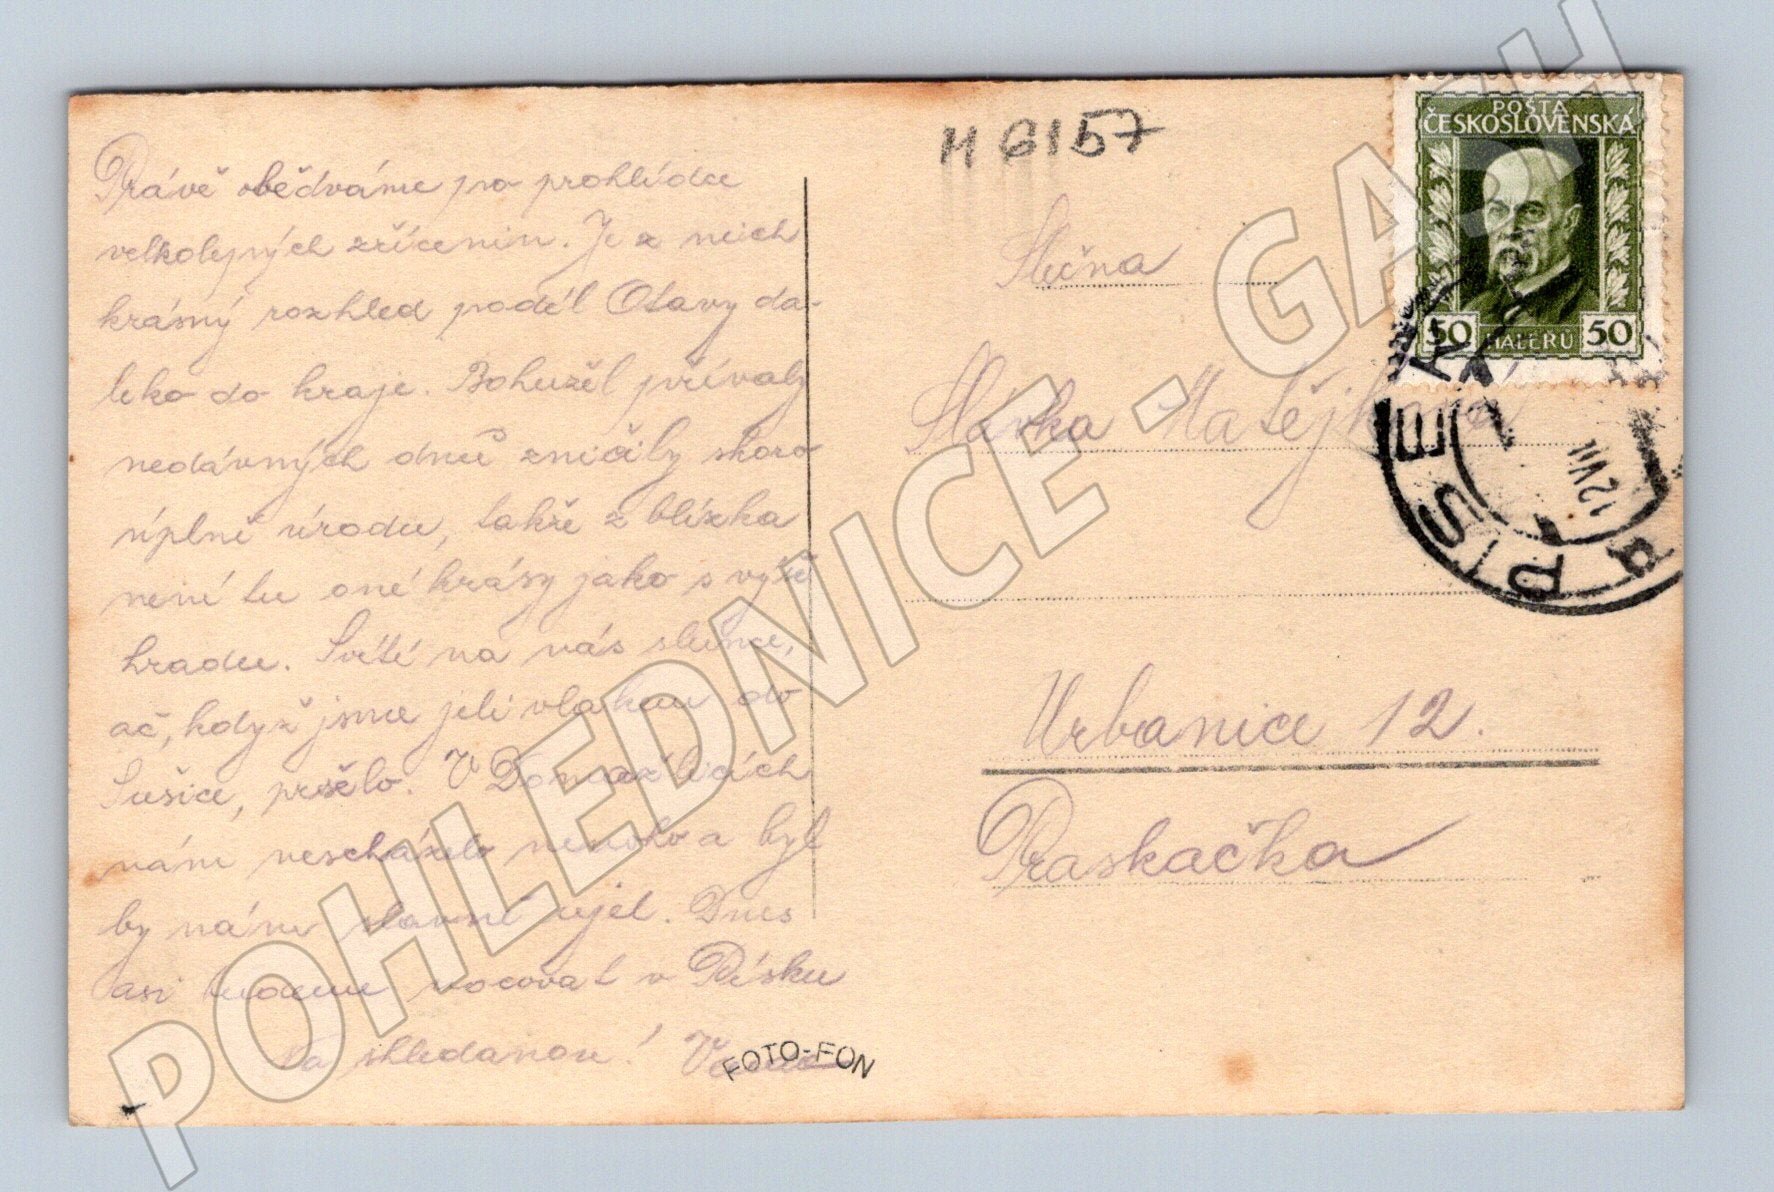 Právě obědváme po prohlídce
velkolepých zřícenin. Je z nich
krásný rozhled podél Otavy da-
leko do kraje. Bohužel přívaly
nedávných dnů zničily skoro
úplně úrodu, takže z blízka
není tu oné krásy jako s výše
hradu. Svítí na nás slunce,
ač, když jsme jeli vlakem do
Sušice, pršelo. V Domažlicích
nám nescházelo mnoho a byl
by nám slavně ujel. Dnes
asi budeme nocovat v Písku
Na shledanou!
FOTO-FON
M 6157
Slečna
Slávka Matějková
Urbanice 12.
Praskačka
POŠTA
ČESKOSLOVENSKÁ
50 HALÉŘŮ 50
PÍSEK
12 VII
POHLEDNICE - GASH